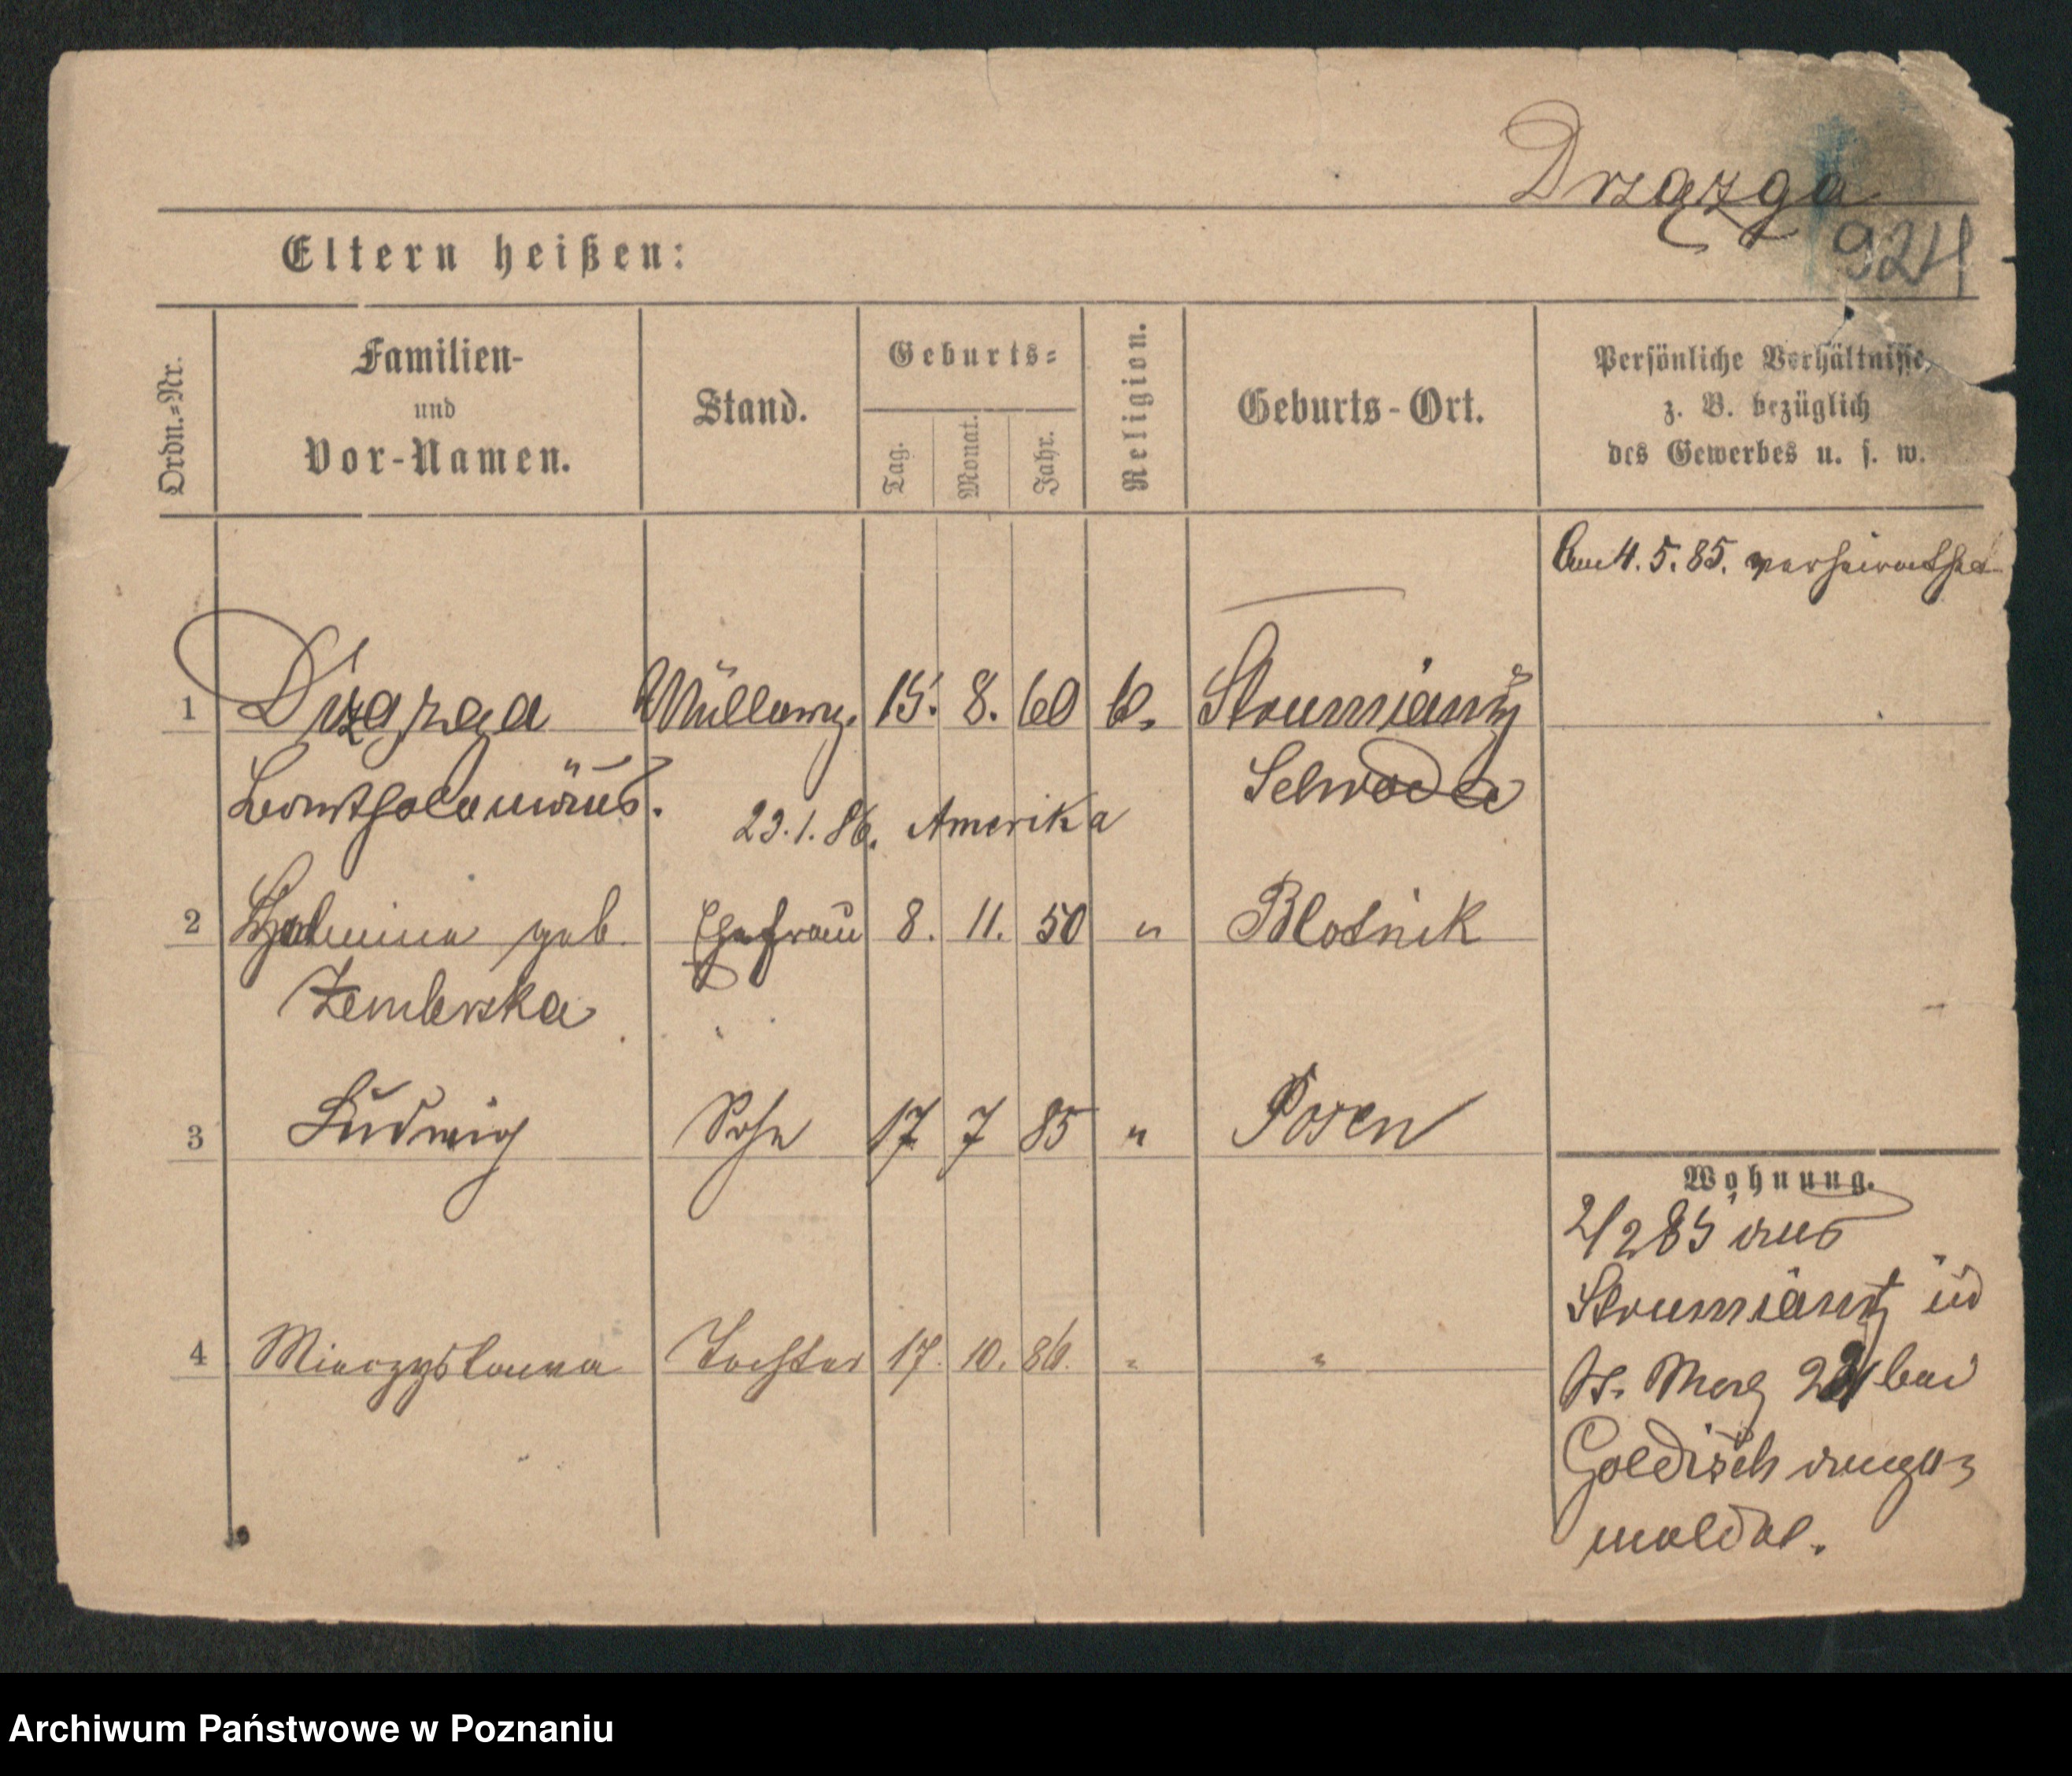 Drzązga
924
Eltern heißen:
Ordn.-Nr.
Familien-
und
Vor-Namen.
Stand.
Geburts-
Tag.
Monat.
Jahr.
Religion.
Geburts-Ort.
Persönliche Verhältnisse,
z. B. bezüglich
des Gewerbes u. s. w.
Am 4. 5. 85. verheirathet
1 Drzazga Müllerg. 15. 8. 60 k. Strumiany
Bartholomäus. Schroda
23. 1. 86. Amerika
2 geb. Ehefrau 8. 11. 50 " Blotnik
Zemlerska
3 Ludwig Sohn 17 7 85 " Posen
4 Mieczyslawa Tochter 17. 10. 86. " "
Wohnung.
2/2 85 aus
Strumiany
bei
Goldisch ange-
meldet.
Archiwum Państwowe w Poznaniu